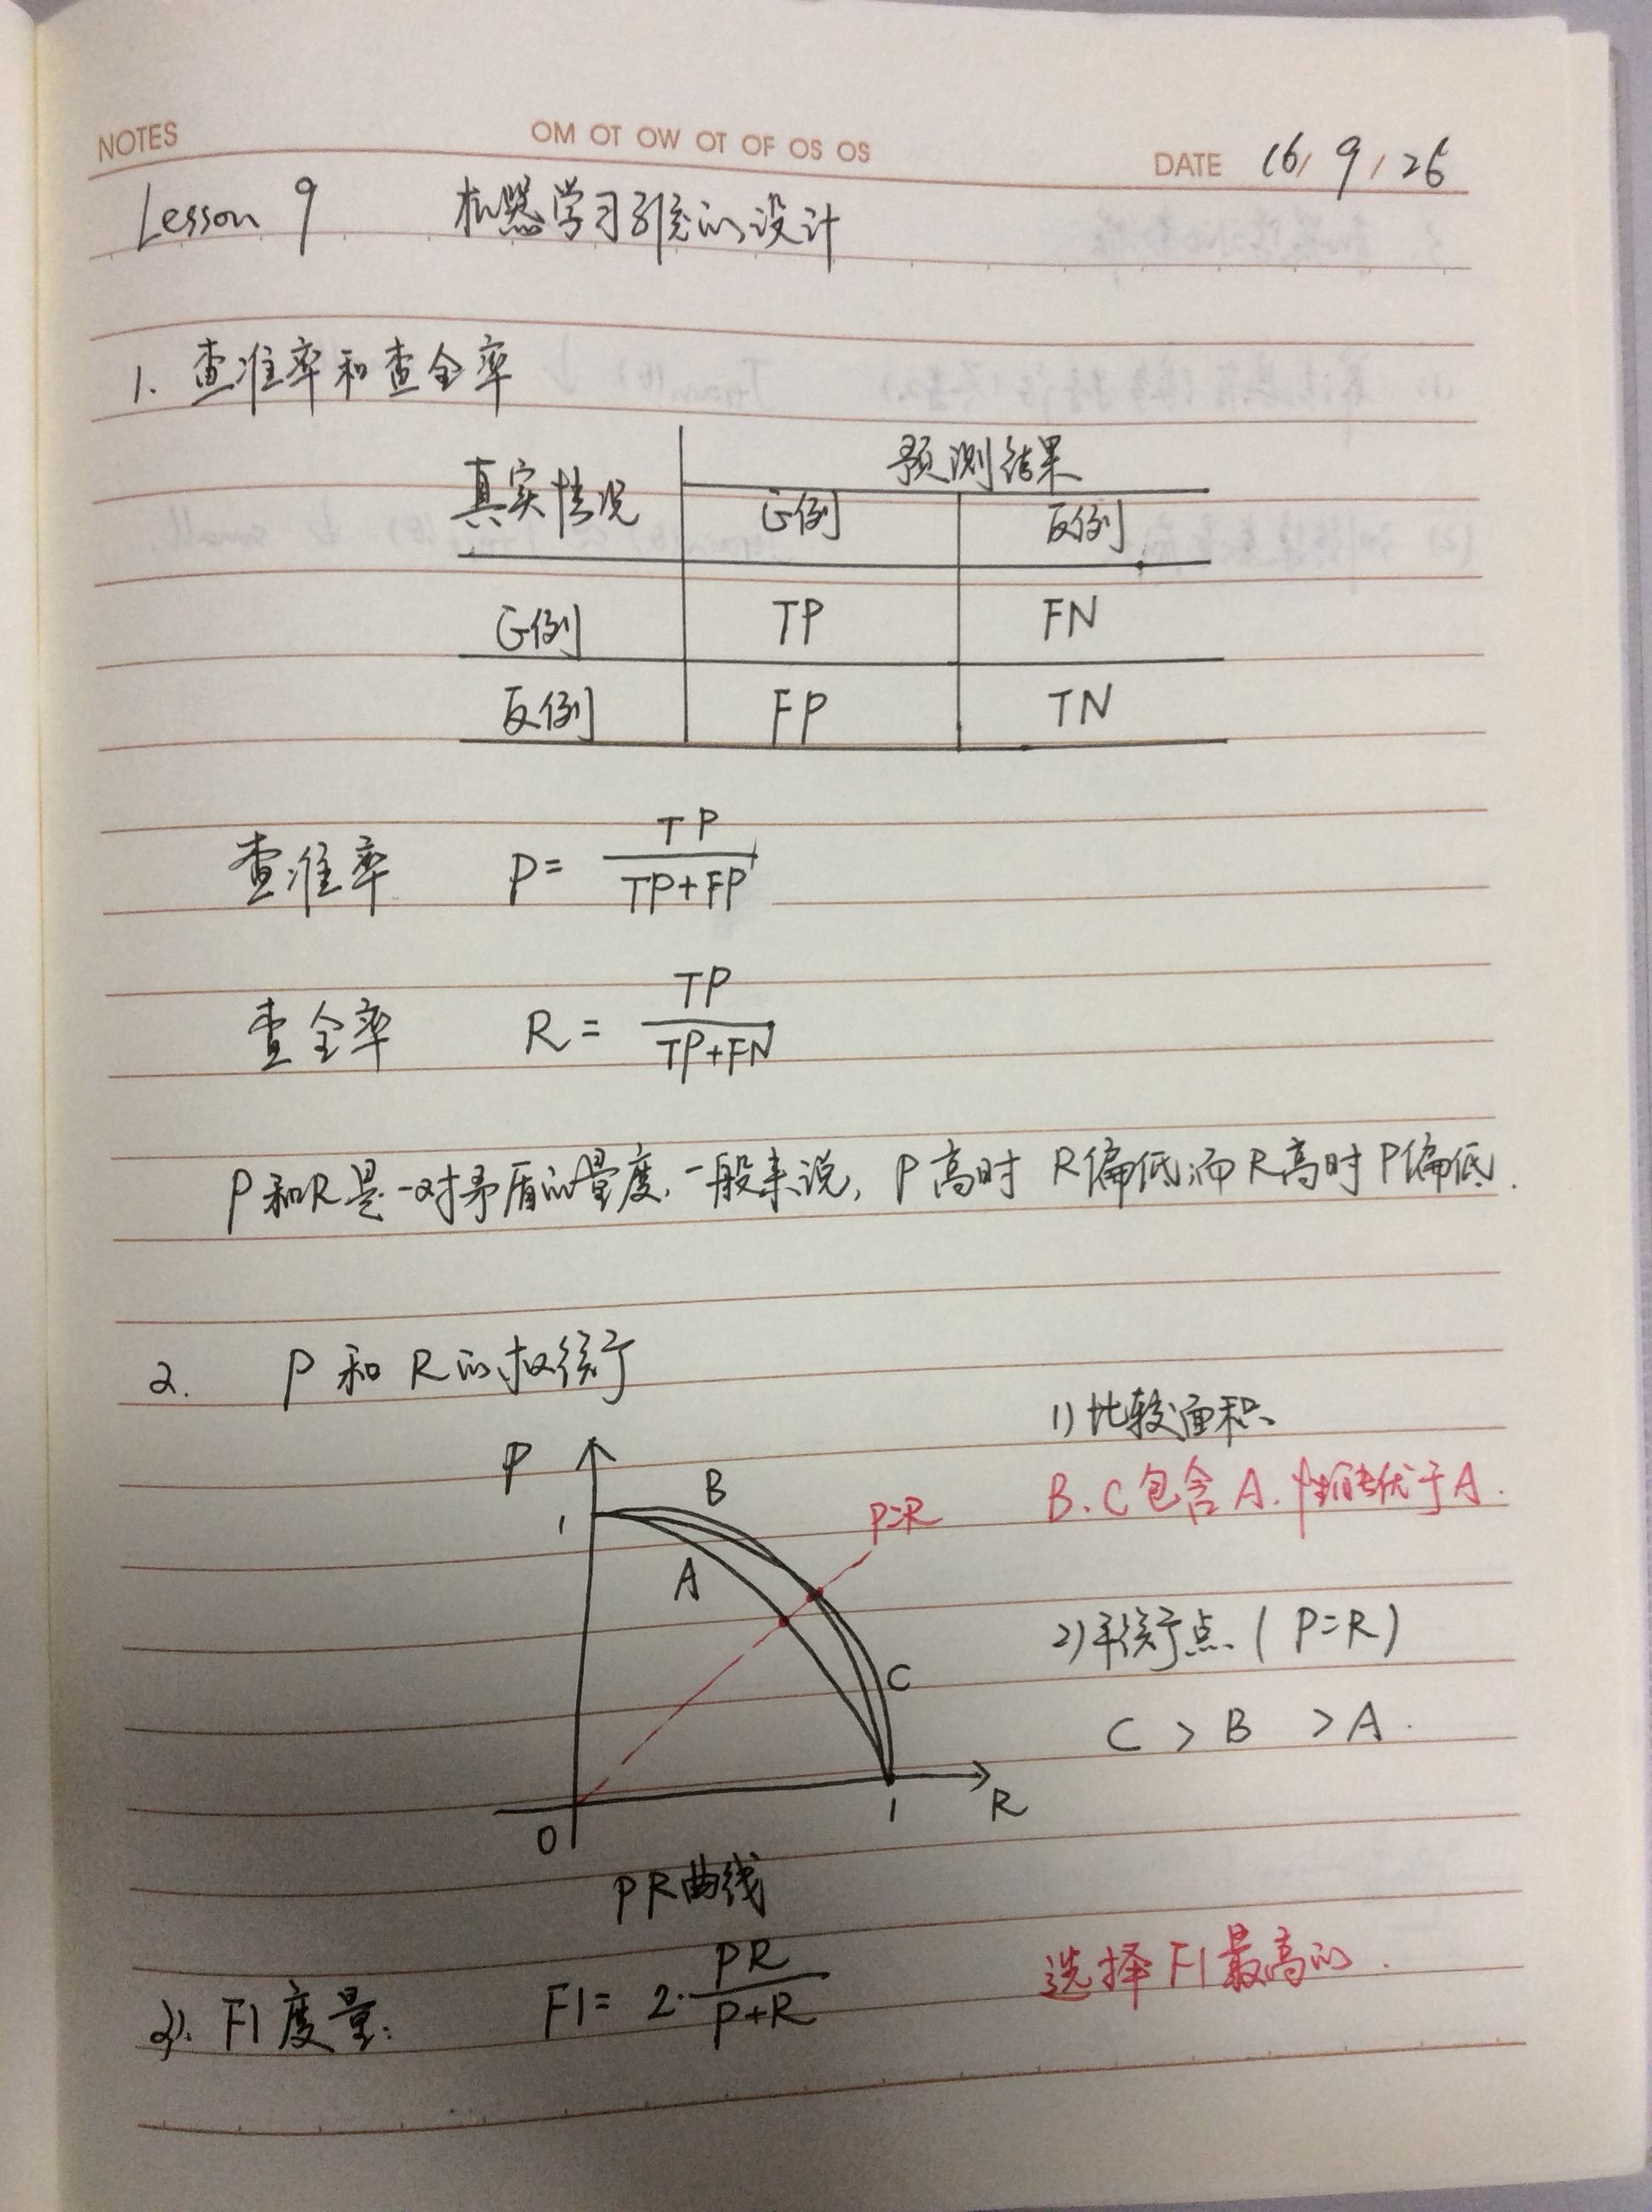 NOTES
OM OT OW OT OF OS OS
DATE 16/9/26
Lesson 9 机器学习系统的设计
1. 查准率和查全率
真实情况 预测结果
正例 反例
正例 TP FN
反例 FP TN
查准率 P= TP/(TP+FP)
查全率 R = TP/(TP+FN)
P和R是一对矛盾的量度,一般来说,P高时 R偏低;而R高时P偏低.
2. P 和 R的权衡
1)比较面积
B.C包含A.性能优于A.
P
1
B
P=R
A
2)平衡点(P=R)
C
C > B > A.
0
1
R
PR曲线
选择F1最高的.
3). F1度量: F1= 2·PR/(P+R)